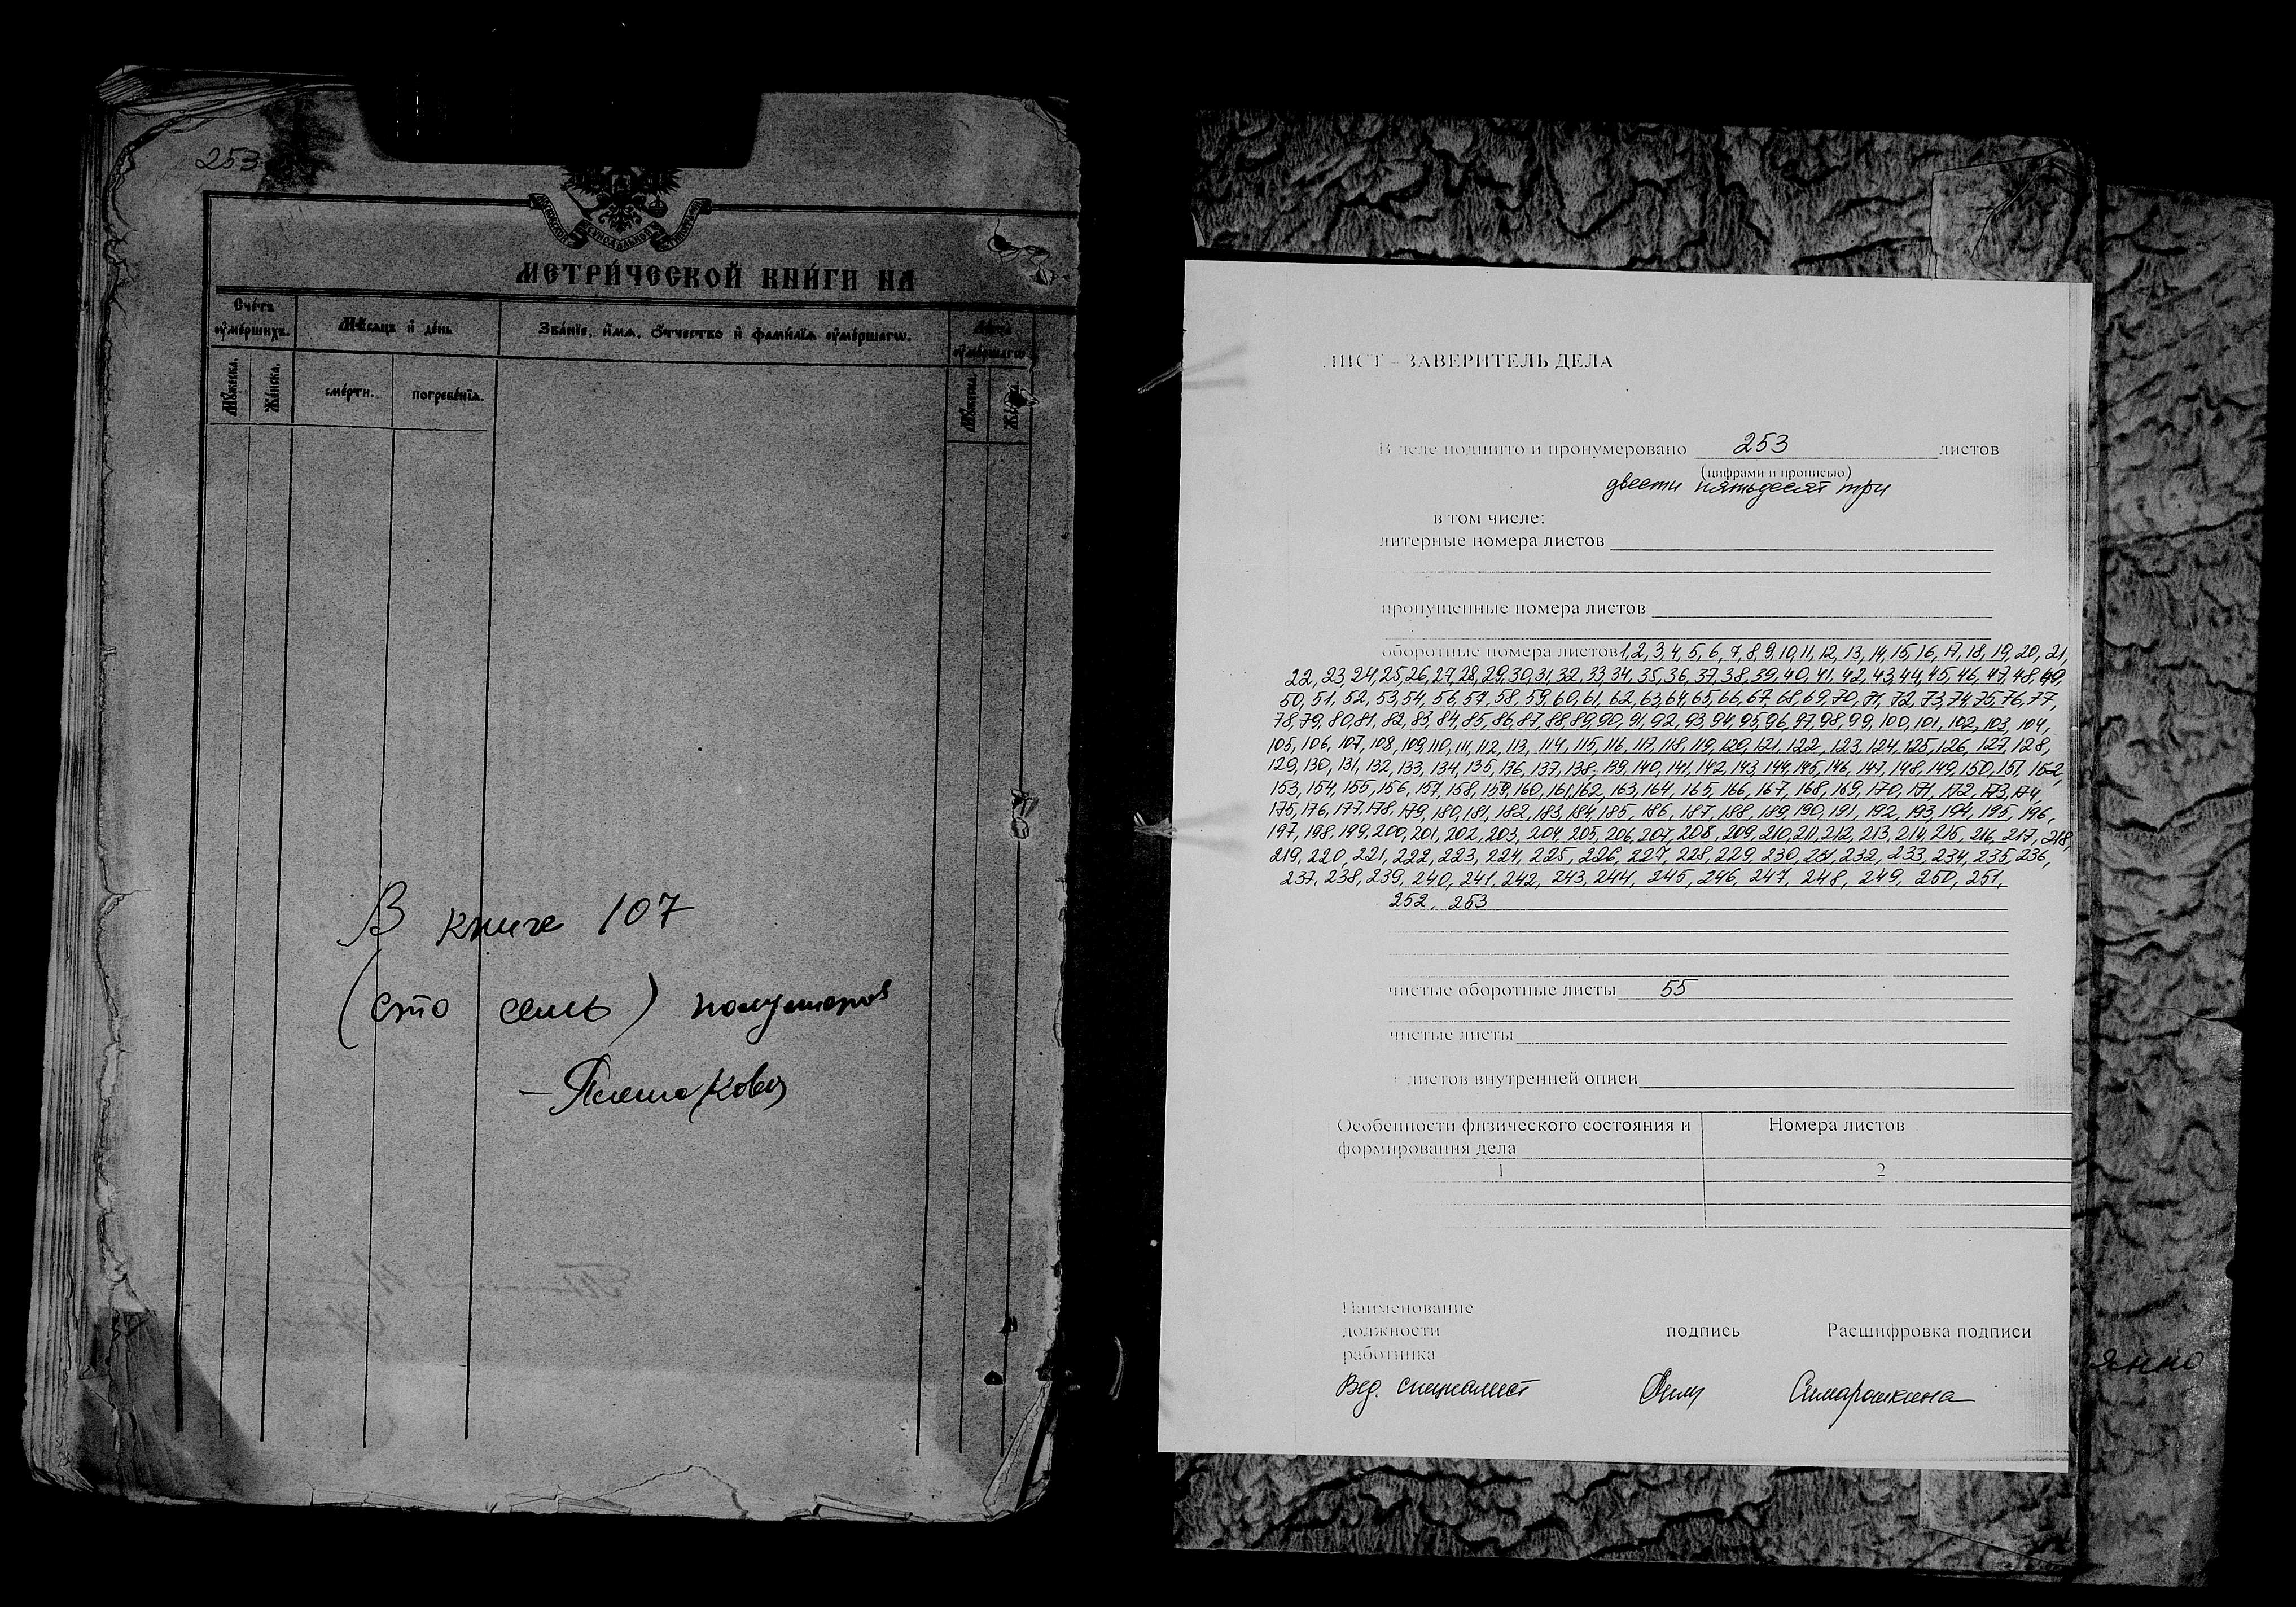 253
МЕТРИ́ЧЕСКОЙ КНИ́ГИ НА
Сче́тъ ᲂу҆ме́ршихъ.
Мѣ́сѧцъ и҆ де́нь
Зва́нїе, и҆́мѧ, ѻ҆́тчество и҆ фами́лїѧ ᲂу҆ме́ршагѡ.
Лѣ́та ᲂу҆ме́ршагѡ
Мꙋ́жеска.
Же́нска.
сме́рти.
погребе́нїѧ.
Мꙋ́жеска.
В книге 107
(сто семь) полулистов
ЛИСТ – ЗАВЕРИТЕЛЬ ДЕЛА
В деле подшито и пронумеровано 253 листов
(цифрами и прописью)
двести пятьдесят три
в том числе:
литерные номера листов
пропущенные номера листов
оборотные номера листов 1, 2, 3, 4, 5, 6, 7, 8, 9, 10, 11, 12, 13, 14, 15, 16, 17, 18, 19, 20, 21,
22, 23, 24, 25, 26, 27, 28, 29, 30, 31, 32, 33, 34, 35, 36, 37, 38, 39, 40, 41, 42, 43, 44, 45, 46, 47, 48, 49,
50, 51, 52, 53, 54, 56, 57, 58, 59, 60, 61, 62, 63, 64, 65, 66, 67, 68, 69, 70, 71, 72, 73, 74, 75, 76, 77,
78, 79, 80, 81, 82, 83, 84, 85, 86, 87, 88, 89, 90, 91, 92, 93, 94, 95, 96, 97, 98, 99, 100, 101, 102, 103, 104,
105, 106, 107, 108, 109, 110, 111, 112, 113, 114, 115, 116, 117, 118, 119, 120, 121, 122, 123, 124, 125, 126, 127, 128,
129, 130, 131, 132, 133, 134, 135, 136, 137, 138, 139, 140, 141, 142, 143, 144, 145, 146, 147, 148, 149, 150, 151, 152,
153, 154, 155, 156, 157, 158, 159, 160, 161, 162, 163, 164, 165, 166, 167, 168, 169, 170, 171, 172, 173, 174,
175, 176, 177, 178, 179, 180, 181, 182, 183, 184, 185, 186, 187, 188, 189, 190, 191, 192, 193, 194, 195, 196,
197, 198, 199, 200, 201, 202, 203, 204, 205, 206, 207, 208, 209, 210, 211, 212, 213, 214, 215, 216, 217, 218,
219, 220, 221, 222, 223, 224, 225, 226, 227, 228, 229, 230, 231, 232, 233, 234, 235, 236,
237, 238, 239, 240, 241, 242, 243, 244, 245, 246, 247, 248, 249, 250, 251,
252, 253
чистые оборотные листы 55
чистые листы
+ листов внутренней описи
Особенности физического состояния и
формирования дела
Номера листов
1 2
Наименование
должности
работника
подпись
Расшифровка подписи
Вед. специалист
Симарошкина
янно